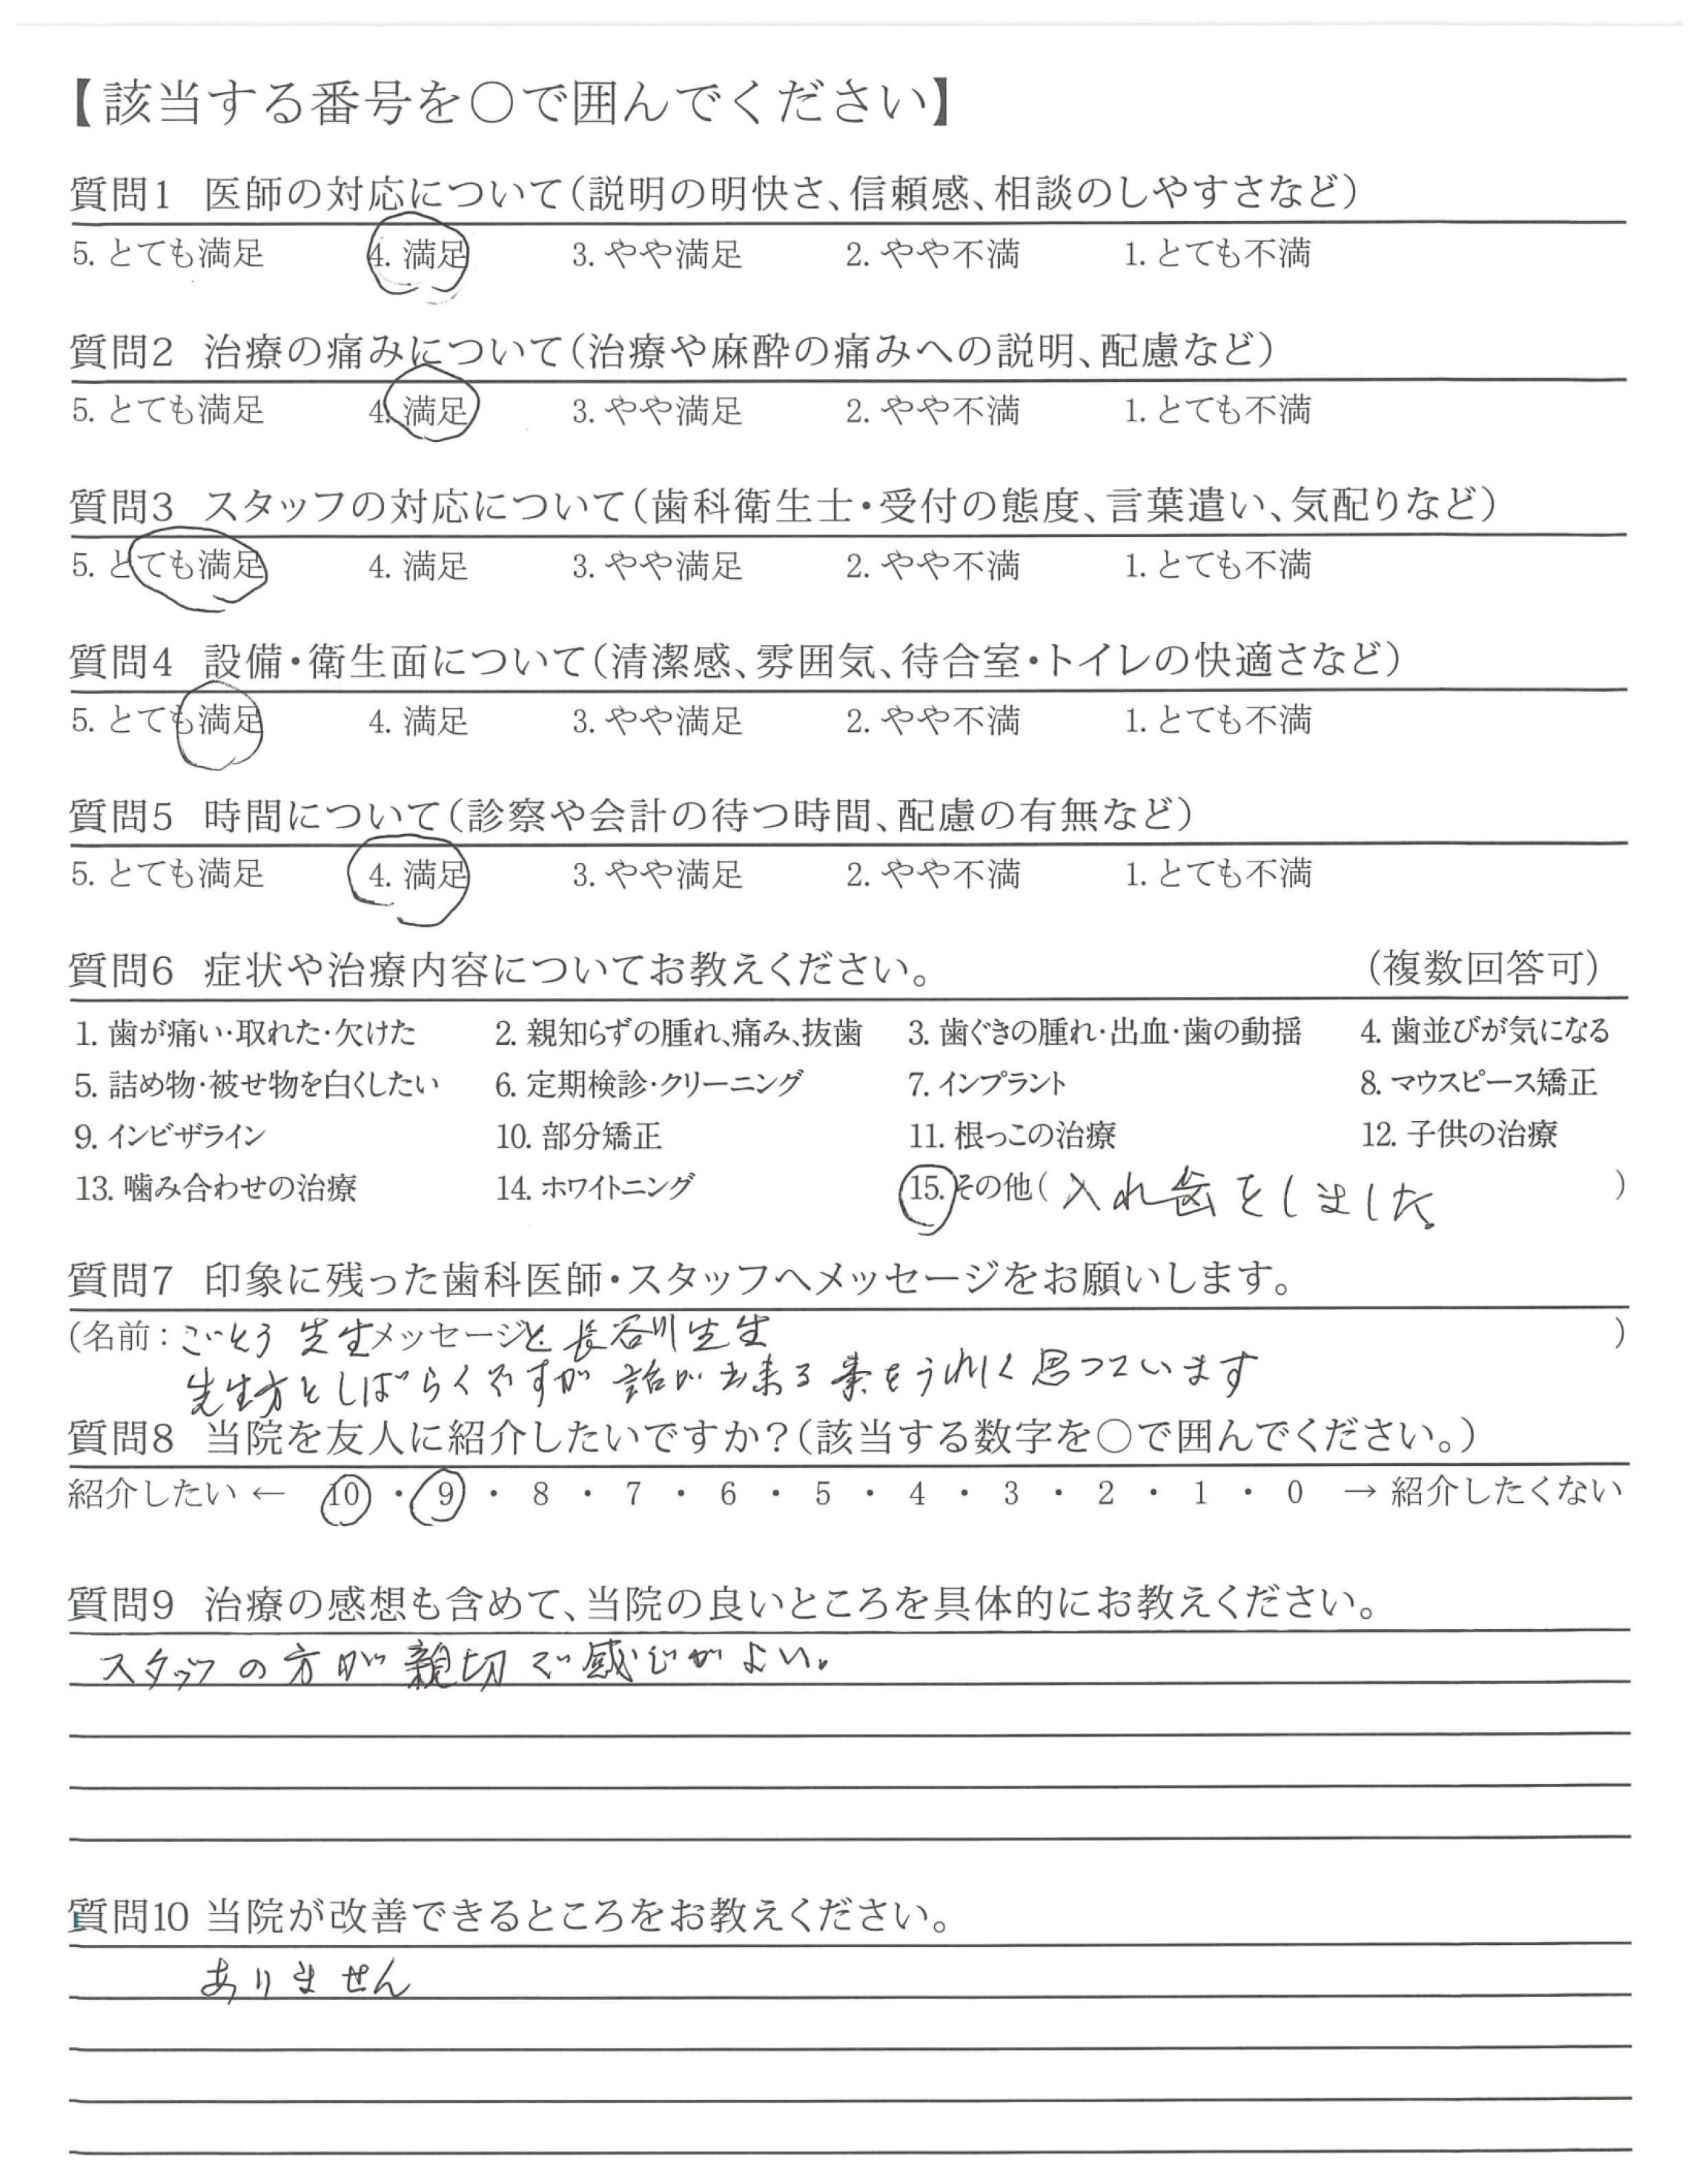 【該当する番号を〇で囲んでください】
質問1 医師の対応について(説明の明快さ、信頼感、相談のしやすさなど)
5. とても満足 4. 満足 3. やや満足 2. やや不満 1. とても不満
質問2 治療の痛みについて(治療や麻酔の痛みへの説明、配慮など)
5. とても満足 4. 満足 3. やや満足 2. やや不満 1. とても不満
質問3 スタッフの対応について(歯科衛生士・受付の態度、言葉遣い、気配りなど)
5. とても満足 4. 満足 3. やや満足 2. やや不満 1. とても不満
質問4 設備・衛生面について(清潔感、雰囲気、待合室・トイレの快適さなど)
5. とても満足 4. 満足 3. やや満足 2. やや不満 1. とても不満
質問5 時間について(診察や会計の待つ時間、配慮の有無など)
5. とても満足 4. 満足 3. やや満足 2. やや不満 1. とても不満
質問6 症状や治療内容についてお教えください。 (複数回答可)
1. 歯が痛い・取れた・欠けた 2. 親知らずの腫れ、痛み、抜歯 3. 歯ぐきの腫れ・出血・歯の動揺 4. 歯並びが気になる
5. 詰め物・被せ物を白くしたい 6. 定期検診・クリーニング 7. インプラント 8. マウスピース矯正
9. インビザライン 10. 部分矯正 11. 根っこの治療 12. 子供の治療
13. 噛み合わせの治療 14. ホワイトニング 15. その他( 入れ歯をしました。 )
質問7 印象に残った歯科医師・スタッフへメッセージをお願いします。
(名前: ごとう 先生メッセージと 長谷川先生 )
先生方としばらくですが 話が出来る事をうれしく思っています
質問8 当院を友人に紹介したいですか?(該当する数字を〇で囲んでください。)
紹介したい ← 10 ・ 9 ・ 8 ・ 7 ・ 6 ・ 5 ・ 4 ・ 3 ・ 2 ・ 1 ・ 0 → 紹介したくない
質問9 治療の感想も含めて、当院の良いところを具体的にお教えください。
スタッフの方が親切で感じがよい。
質問10 当院が改善できるところをお教えください。
ありません